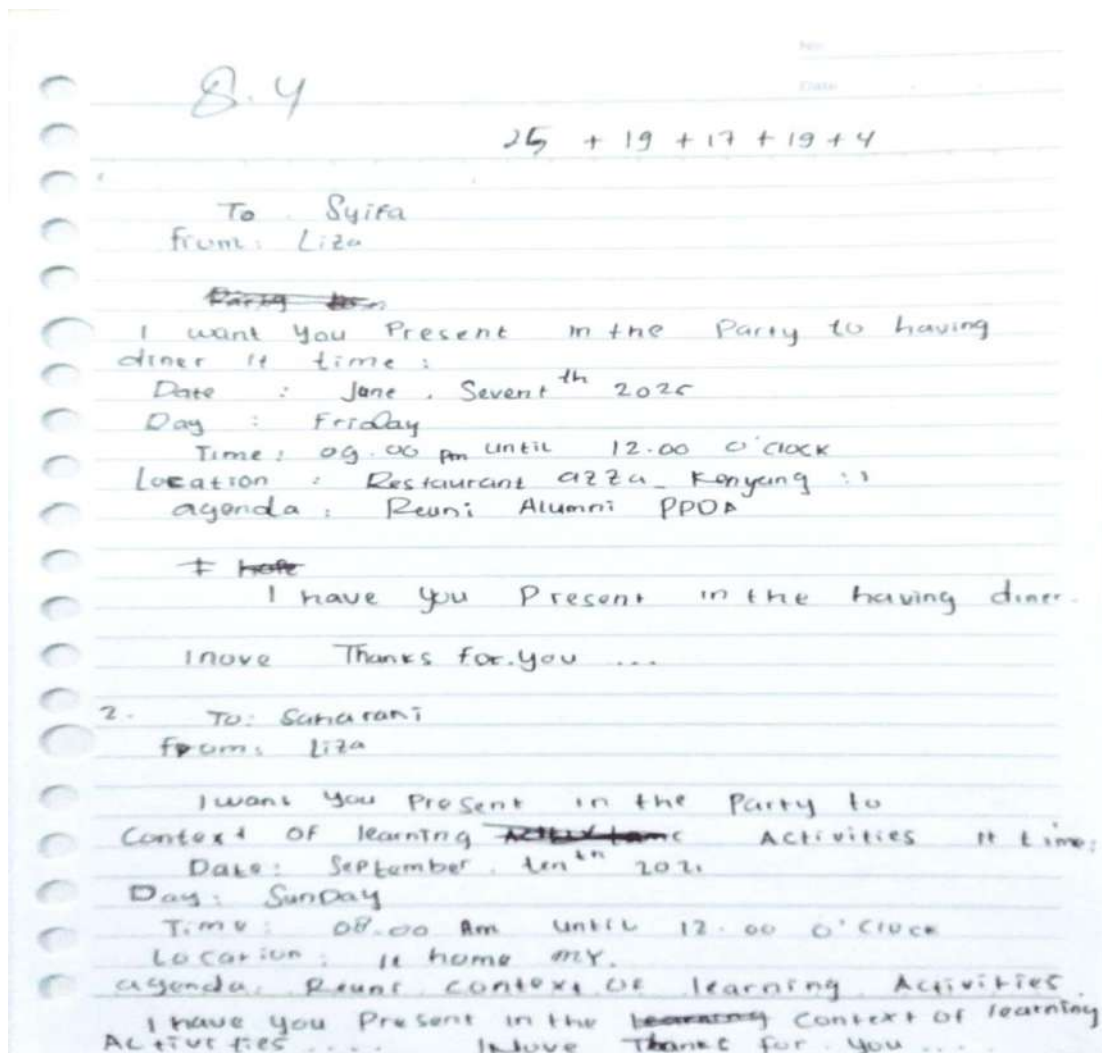 No:
Date
8.4
25 + 19 + 17 + 19 + 4
To Syifa
from: Liza
I want you Present in the Party to having
diner it time :
Date : June, Sevent th
Day : Friday
Time : 09.00 pm until 12.00 o'clock
Location : Restaurant azza_ Kenyang :)
agenda : Reuni Alumni PPDA
I hope
I have you Present in the having diner.
Thanks for. you ...
2. To: Saharani
from: Liza
I want you Present in the Party to
Context OF learning Activities it time:
Date: September, ten th
Day: SunDay
Time: 08.00 Am until 12.00 o'clock
Location: it home my.
agenda: Reuni context OF learning Activities.
I have you Present in the learning Context OF learning
Activities .... Thanks for you ....